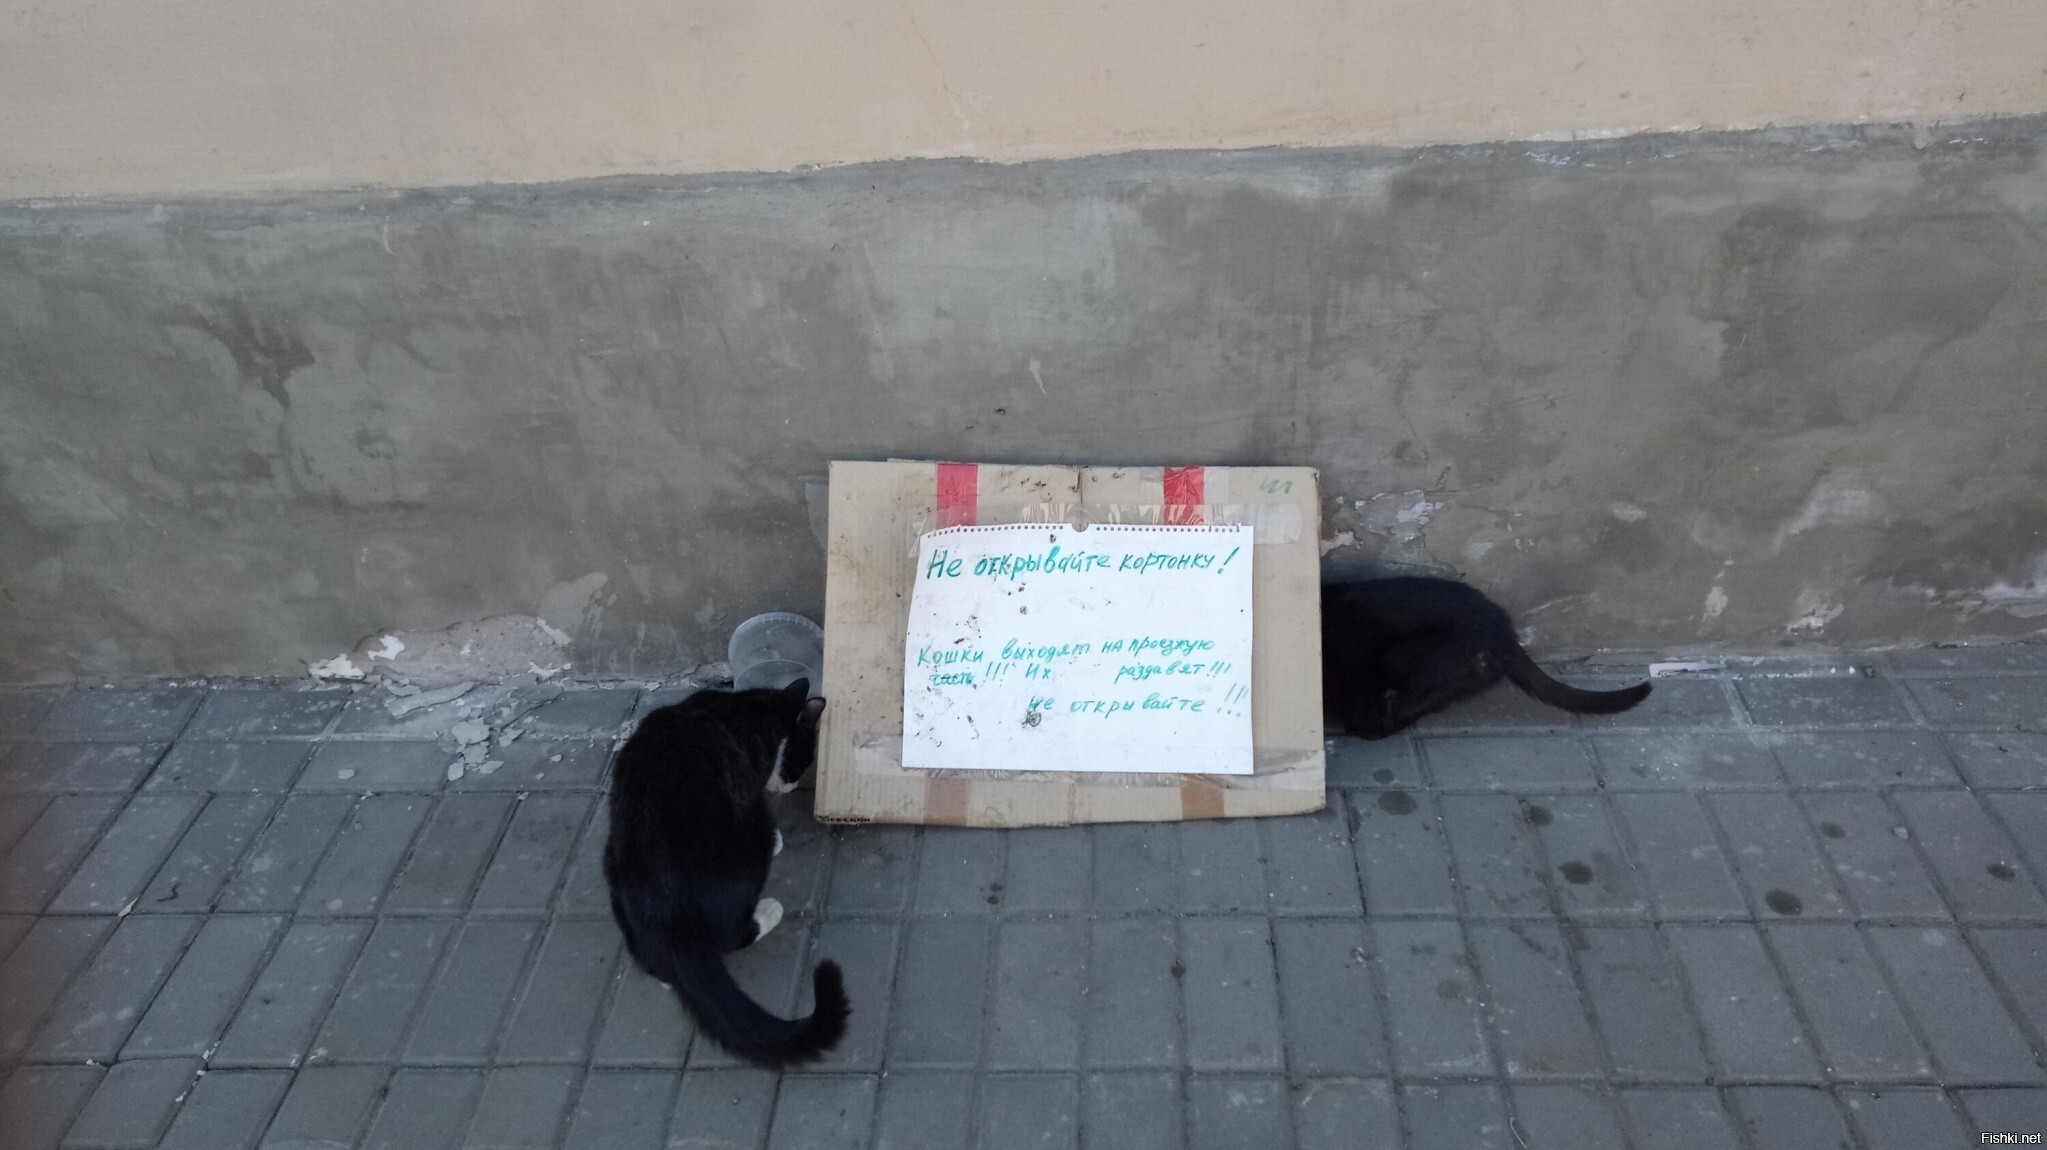 Не открывайте кортонку!
Кошки выходят на проезжую
часть!!! Их раздавят!!!
Не открывайте!!!
Fishki.net